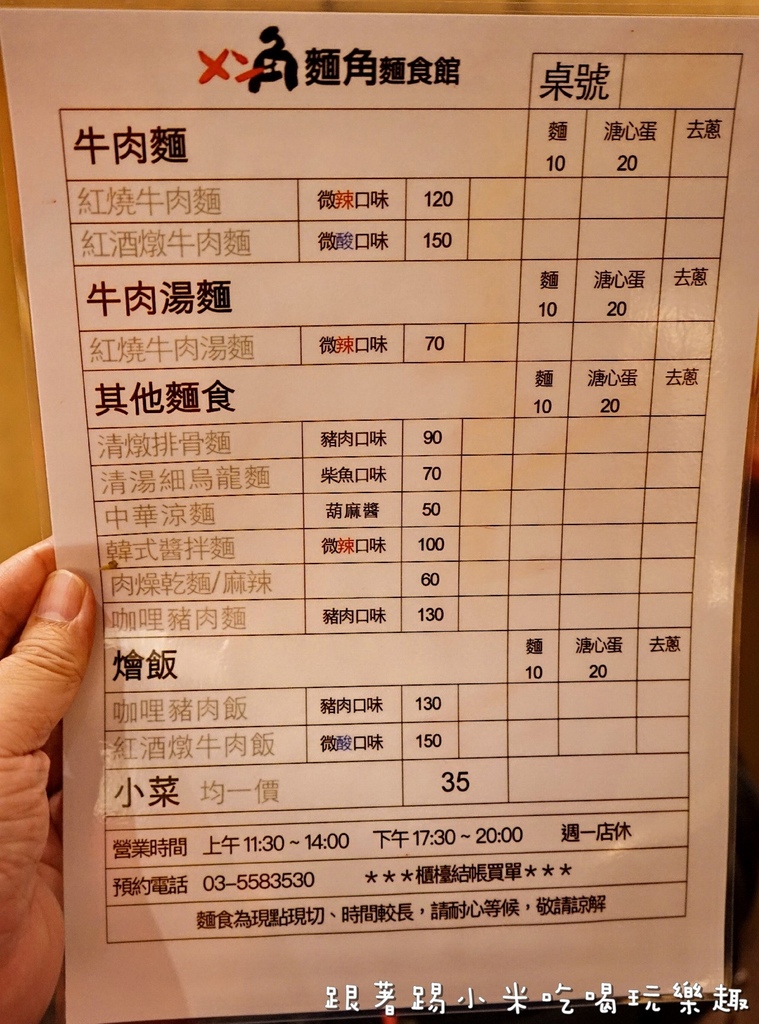 メン角 麵角麵食館
桌號
牛肉麵 麵 10 溏心蛋 20 去蔥
紅燒牛肉麵 微辣口味 120
紅酒燉牛肉麵 微酸口味 150
牛肉湯麵 麵 10 溏心蛋 20 去蔥
紅燒牛肉湯麵 微辣口味 70
其他麵食 麵 10 溏心蛋 20 去蔥
清燉排骨麵 豬肉口味 90
清湯細烏龍麵 柴魚口味 70
中華涼麵 葫麻醬 50
韓式醬拌麵 微辣口味 100
肉燥乾麵/麻辣 60
咖哩豬肉麵 豬肉口味 130
燴飯 麵 10 溏心蛋 20 去蔥
咖哩豬肉飯 豬肉口味 130
紅酒燉牛肉飯 微酸口味 150
小菜 均一價 35
營業時間 上午 11:30 ~ 14:00 下午 17:30 ~ 20:00 週一店休
預約電話 03-5583530 ***櫃檯結帳買單***
麵食為現點現切、時間較長，請耐心等候，敬請諒解
跟著踢小米吃喝玩樂趣